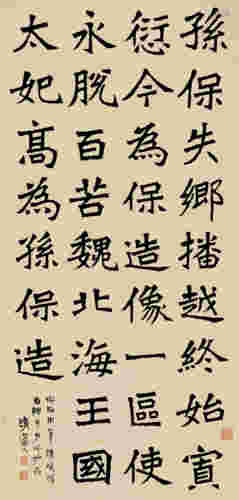 孫保失鄉播越終始冥
愆今為保造像一區使
永脫百苦魏北海王國
太妃髙為孫保造